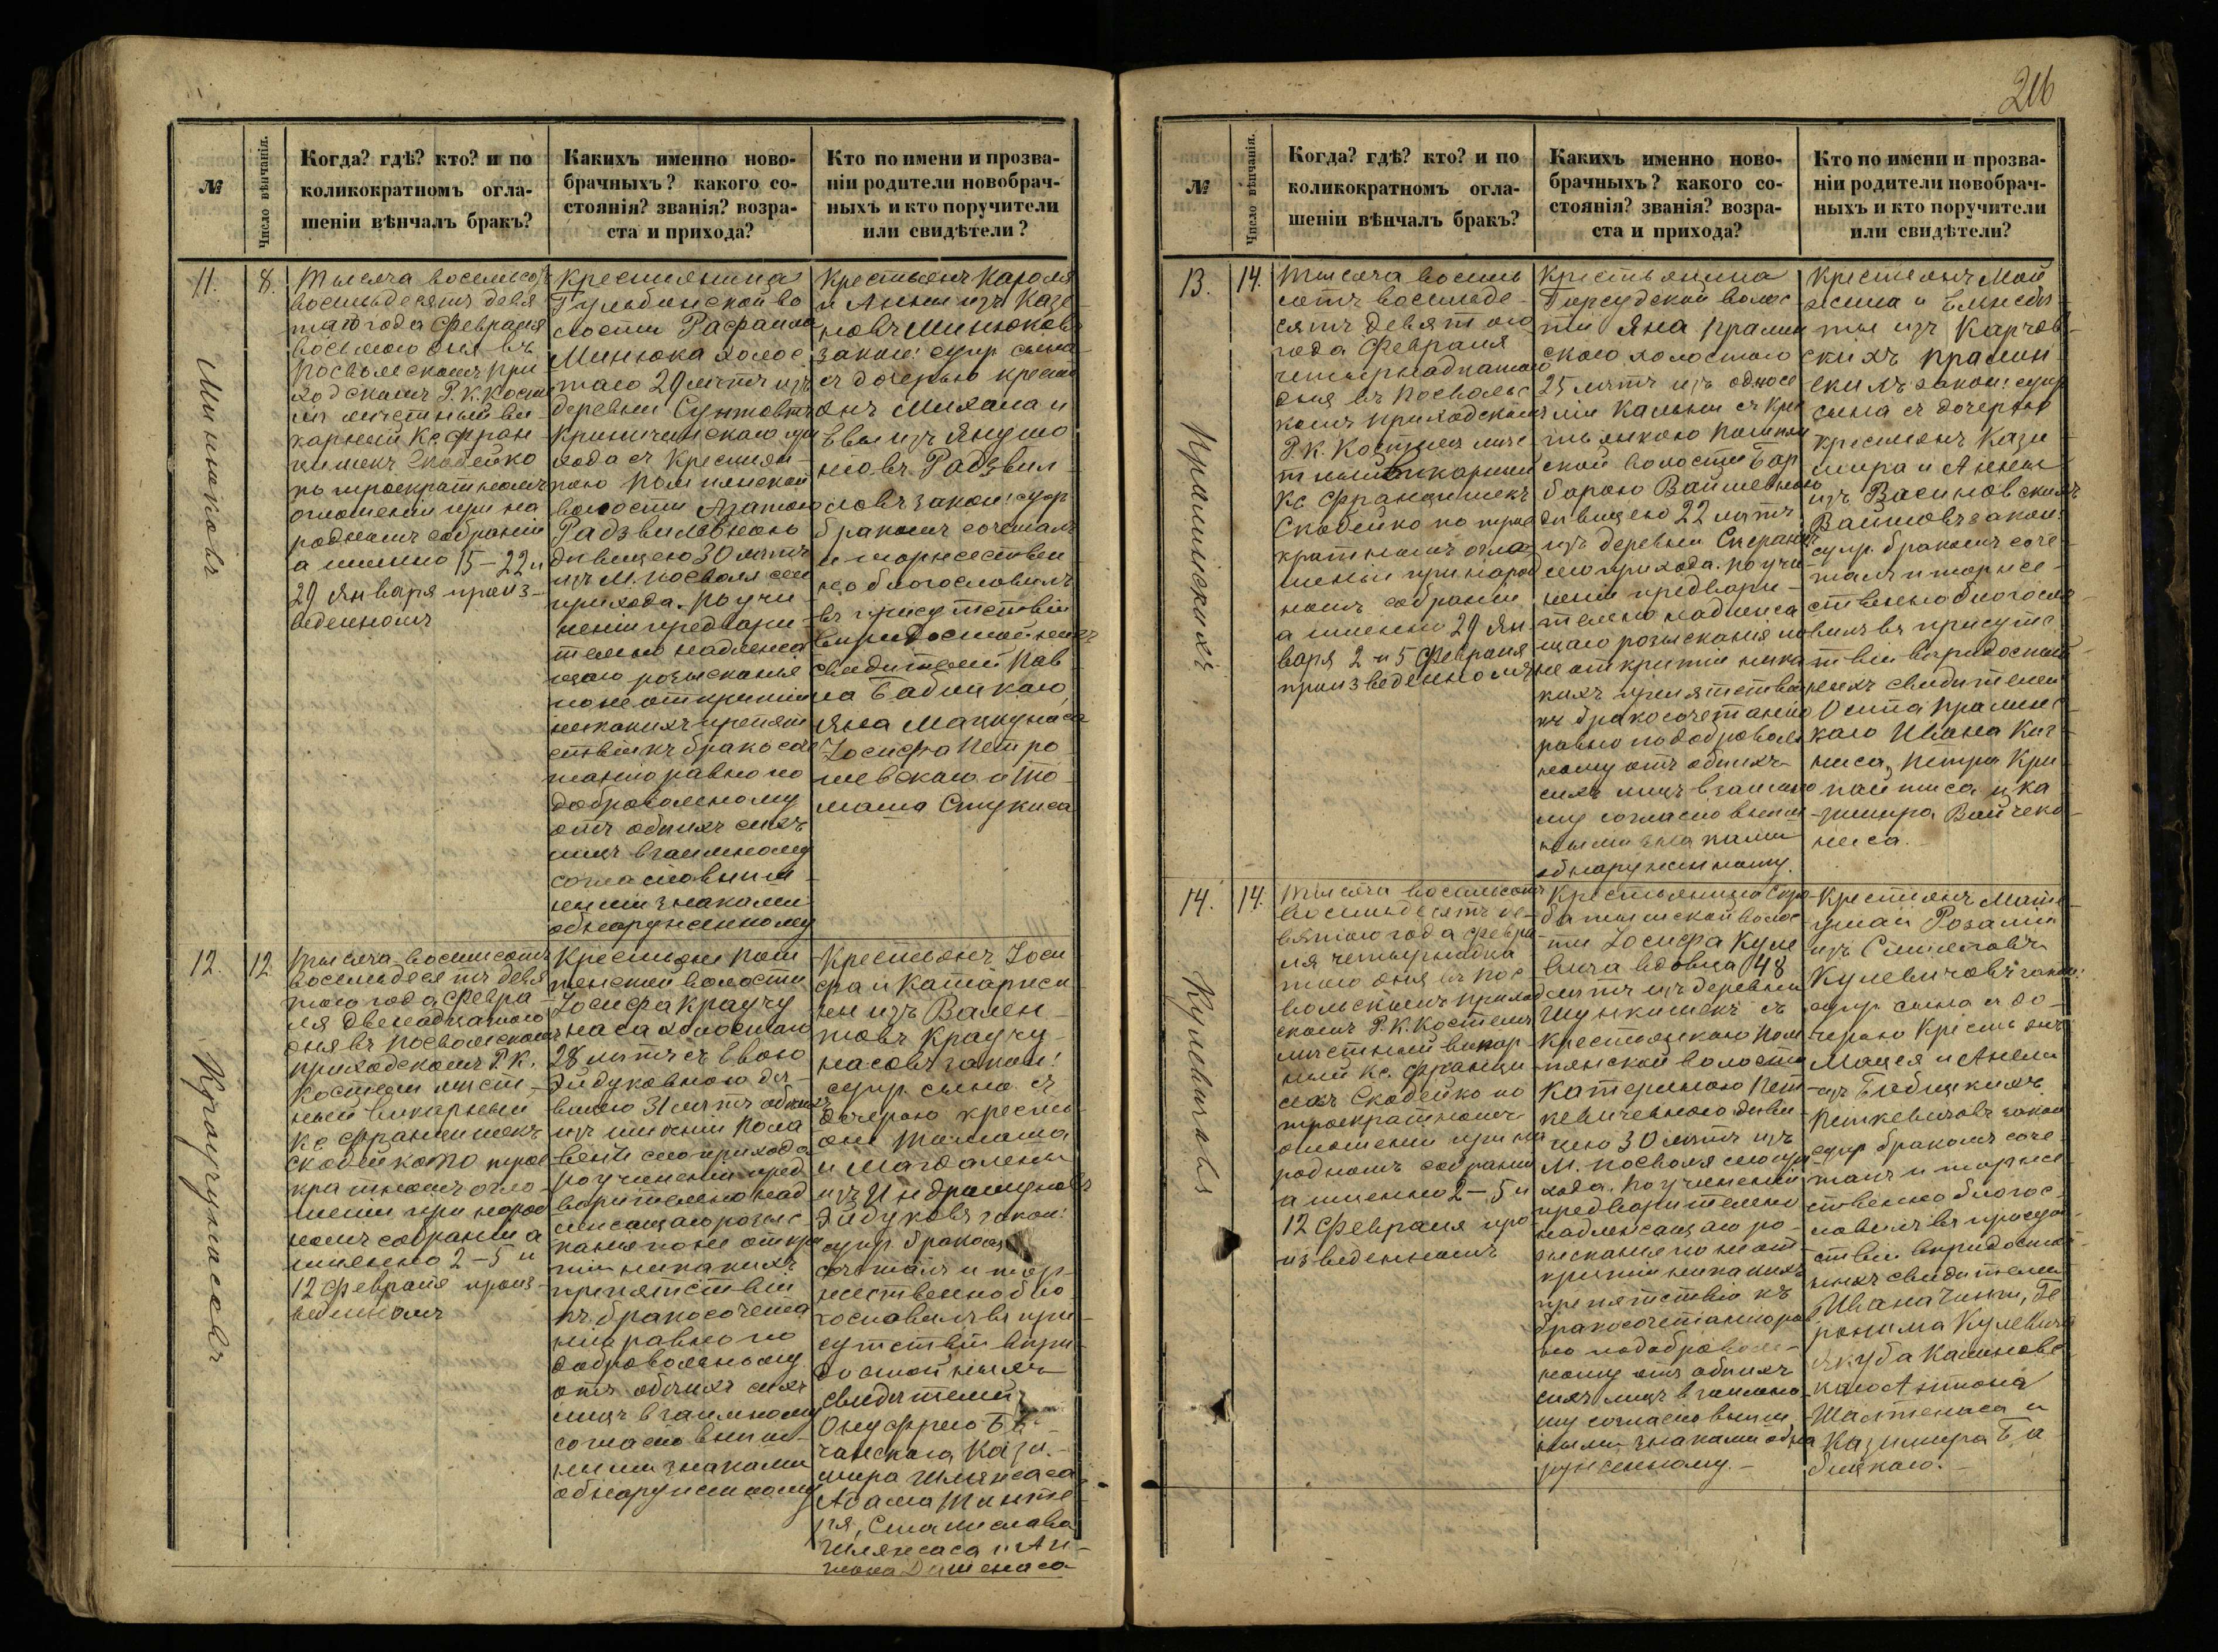 №
Число вѣнчанія.
Когда? гдѣ? кто? и по
коликократномъ огла-
шеніи вѣнчалъ бракъ?
Какихъ именно ново-
брачныхъ? какого со-
стоянія? званія? возра-
ста и прихода?
Кто по имени и прозва-
ніи родители новобрач-
ныхъ и кто поручители
или свидѣтели?
11.
Минюковъ
8.
Тысяча восемьсотъ
восемьдесятъ девя
таго года Февраля
восьмаго дня въ
Посвольскомъ При
ходскомъ Р. К. Косте
лѣ мѣстный ви-
карный Кс. Фран
цишекъ Скобейко
по троекратномъ
оглошеніи при на
родномъ собраніи
а именно 15-22 и
29 Января произ-
веденномъ
Крестьянина
во
лости Рафаила
Минюка холос
таго 29 лѣтъ изъ
деревни
при
хода съ Крестьян-
кою Помпянской
волости Агатою
Радзвиловною
дѣвицею 30 лѣтъ
изъ М. Посволя сего
прихода. По учи
неніи предвари-
тельно надлежа
щаго розысканія
по не открытіи
никакихъ препят
ствій къ бракосоче
танію равно по
добровольному
отъ обоихъ сихъ
лицъ взаимному
согласію внѣш
ними знаками
обнаруженному
Крестьянъ Кароля
и Анны изъ Казе
новъ Минюковъ
закон: супр. сына
съ дочерью крест
янъ Михала и
Евы изъ Янушо
новъ Радзвил
ловъ закон: супр
бракомъ сочеталъ
и торжествен
но благословилъ
въ присутствіи
вѣридостойныхъ
свидѣтелей Пав
ла Бабицкаго,
Яна Мацкунаса
Іосифа Петро
шевскаго и То
маша Стукиса
12.
Краучунасовъ
12
Тысяча восемьсотъ
восемьдесятъ девя
таго года Февра
ля двенадцатаго
дня въ Посвольскомъ
приходскомъ Р. К.
Костели мѣст-
ный викарный
Кс Францишекъ
Скобейко по трое
кратномъ огло-
шеніи при народ
номъ собраніи а
именно 2-5 и
12 Февраля произ-
веденномъ
Крестьяни Пом
пянской волости
Іосифа Краучу
наса холостаго
28 лѣтъ съ Евою
Эйдуковною дѣ-
вицею 31 лѣтъ обоихъ
изъ имѣнія Пола
вени сего прихода
По учиненіи пред
варительно над
лежащаго розыс-
канія по не откры
тіи никакихъ
препятствій
къ бракосочета
нію равно по
добровольному
отъ обоихъ сихъ
лицъ взаимному
согласію внѣш-
ними знаками
обнаруженному
Крестьянъ Іоси
фа и Катарисы
ны изъ Вален
товъ Краучу-
насовъ закон:
супр. сына съ
дочерью кресть
янъ Томаша
и Магдалены
изъ Индрашуновъ
Эйдуковъ закон:
супр. бракомъ
сочеталъ и тор-
жественно бла
гословилъ въ при
сутствіи вѣри
достойныхъ
свидѣтелей
Онуфрію
Кази-
мира Шляжаса
Адама
Станислава
Шляжаса и Ан-
тона
216
№
Число вѣнчанія.
Когда? гдѣ? кто? и по
коликократномъ огла-
шеніи вѣнчалъ бракъ?
Какихъ именно ново-
брачныхъ? какого со-
стоянія? званія? возра-
ста и прихода?
Кто по имени и прозва-
ніи родители новобрач-
ныхъ и кто поручители
или свидѣтели?
13.
Праминскихъ
14.
Тысяча восемь
сотъ восемьде-
сятъ девятаго
года Февраля
четырнадцатаго
дня въ Посвольс
комъ Приходскомъ
Р. К. Костелѣ мѣс
тный викарный
Кс Францишекъ
Скобейко по трое
кратномъ огла-
шеніи при народ
номъ собраніи
а именно 29 Ян-
варя 2 и 5 Февраля
произведенномъ
Крестьянина
волос
ти Яна Прамин
скаго холостаго
25 лѣтъ изъ односе
лія Кальни съ Крес
тьянкою Помпян
ской волости Бар
барою Вайшевною
дѣвицею 22 лѣтъ
изъ деревни
сего прихода. По учи-
неніи предвари-
тельно надлежа
щаго розысканія по
не открытіи ника
кихъ препятствій
къ бракосочетанію
равно по доброволь
ному отъ обоихъ
сихъ лицъ взаимно
му согласію внѣш
ними знаками
обнаруженному.
Крестьянъ Мой
жеша и Елисабе
ты изъ Карчев-
скихъ Прамин-
скихъ закон: супр.
сына съ дочерью
крестьянъ Кази
мира и Анны
изъ Василовскихъ
Вайшовъ закон:
супр. бракомъ соче-
талъ и торже-
ственно благосло
вилъ въ присутс
твіи вѣридостой
ныхъ свидѣтелей
Осипа Прамин
каго Ивана
Петра Кри
и Ка
зимира Вайчеко
ниса.
14.
Кулевичовъ
14.
Тысяча восемьсотъ
восемьдесятъ де-
вятаго года Февра-
ля четырнадца
таго дня въ Пос
вольскомъ Приход
скомъ Р. К. Костелѣ
мѣстный викар-
ный Кс. Франци
шекъ Скобейко по
троекратномъ
оглошеніи при на
родномъ собраніи
а именно 2-5 и
12 Февраля про
изведенномъ
Крестьянина Скро
ботишской волос
ти Іосифа Куле
вича вдовца 48
лѣтъ изъ деревни
Шункишекъ съ
Крестьянкою Пом
пянской волости
Катериною Пет
кевичевною дѣви
цею 30 лѣтъ изъ
М. Посволя сего при
хода. По учиненіи
предварительно
надлежащаго ро-
зысканія по не от
крытіи никакихъ
препятствій къ
бракосочетанію рав
но по доброволь-
ному отъ обоихъ
сихъ лицъ взаимно
му согласію внѣш
ними знаками обна
руженному.-
Крестьянъ Мате
уша и Розаліи
изъ
Кулевичовъ закон:
супр. сына съ до-
черью Кресть янъ
Мацея и Анели
изъ Бабицкихъ
Петкевичовъ закон
супр бракомъ соче-
талъ и торже
ственно благос
ловилъ въ присут
ствіи вѣридостой
ныхъ свидѣтелей
Ивана Ге
ронима Кулевича
Якуба Калиновс
каго Антона
и
Казимира Ба
бицкаго.-